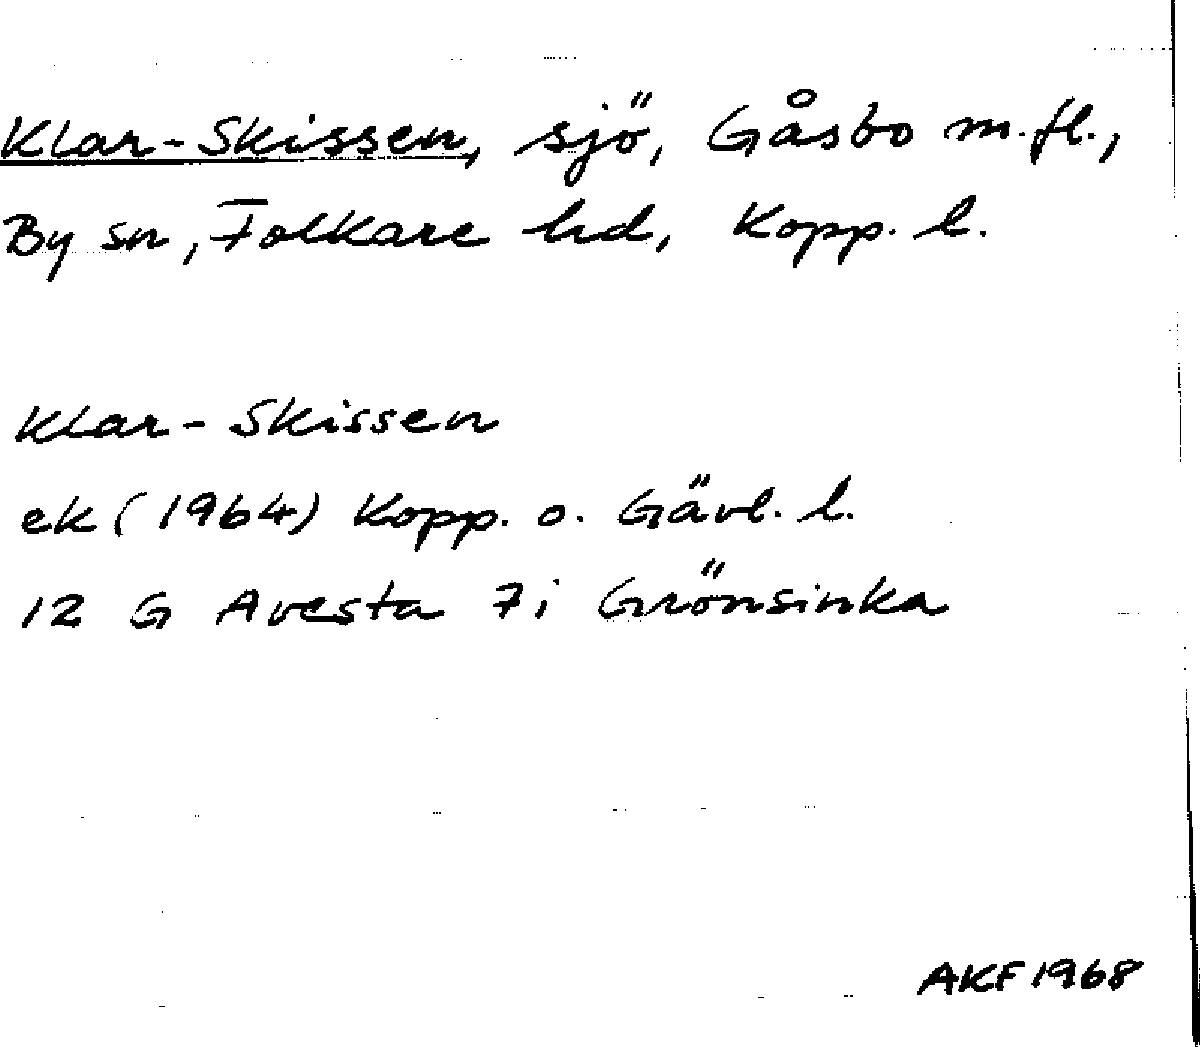 Klar-Skissen, sjö, Gåsbo m.fl.,
By sn, Folkare hd, Kopp. l.
Klar-Skissen
ek (1964) Kopp. o. Gävl. l.
12 G Avesta 7i Grönsinka
AKF 1968